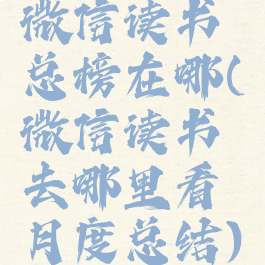 微信读书
总榜在哪(
微信读书
去哪里看
月度总结)